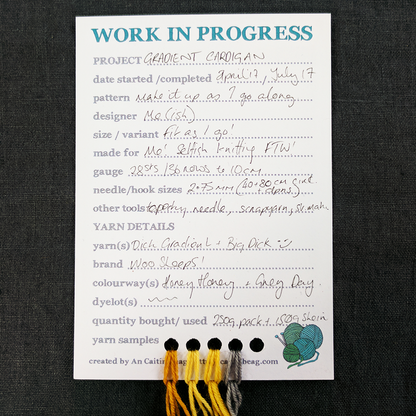 WORK IN PROGRESS
PROJECT GRADIENT CARDIGAN
date started /completed April 17, July 17
pattern make it up as I go along
designer Me (ish)
size / variant Fit as I go!
made for Me! Selfish knitting FTW!
gauge 28sts /36 rows to 10cm
needle/hook sizes 2.75mm (40+80cm circ. + dpns)
other tools tapestry needle, scrap yarn, st. mark
YARN DETAILS
yarn(s) Dick Gradient + Big Dick
brand Woo Sheeps!
colourway(s) Honey Honey + Grey Day
dyelot(s)
quantity bought/ used 250g pack + 150g skein
yarn samples
created by An Caitin